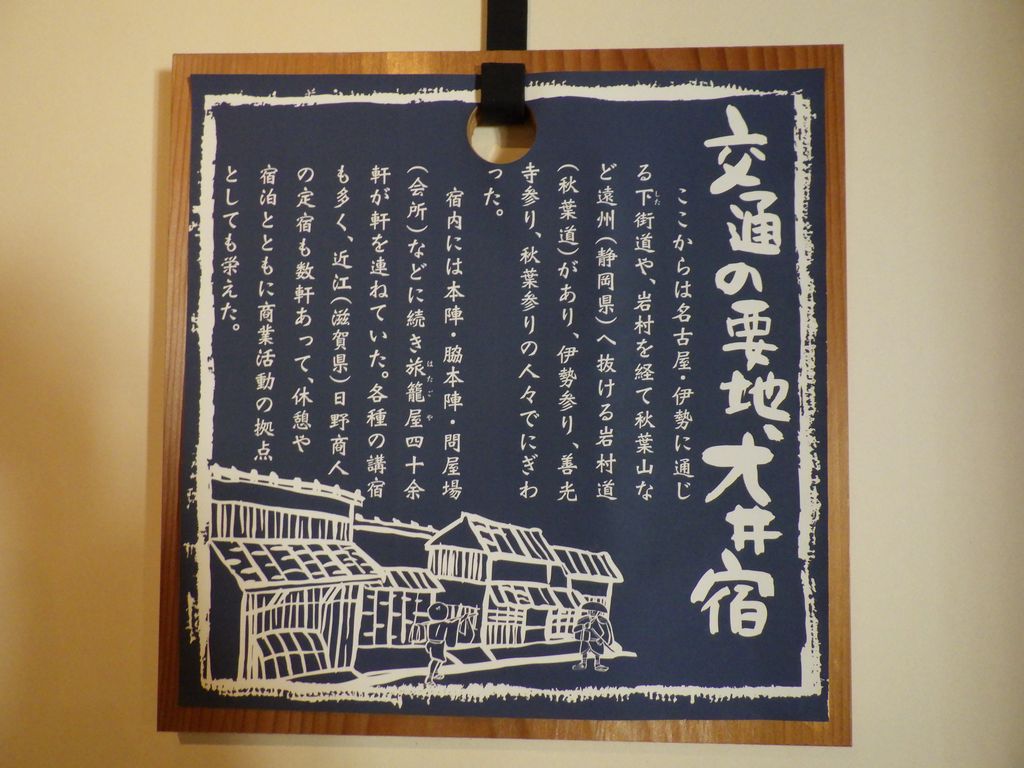 交通の要地、大井宿
ここからは名古屋・伊勢に通じ
る下街道や、岩村を経て秋葉山な
ど遠州(静岡県)へ抜ける岩村道
(秋葉道)があり、伊勢参り、善光
寺参り、秋葉参りの人々でにぎわ
った。
宿内には本陣・脇本陣・問屋場
(会所)などに続き旅籠屋四十余
軒が軒を連ねていた。各種の講宿
も多く、近江(滋賀県)日野商人
の定宿も数軒あって、休憩や
宿泊とともに商業活動の拠点
としても栄えた。